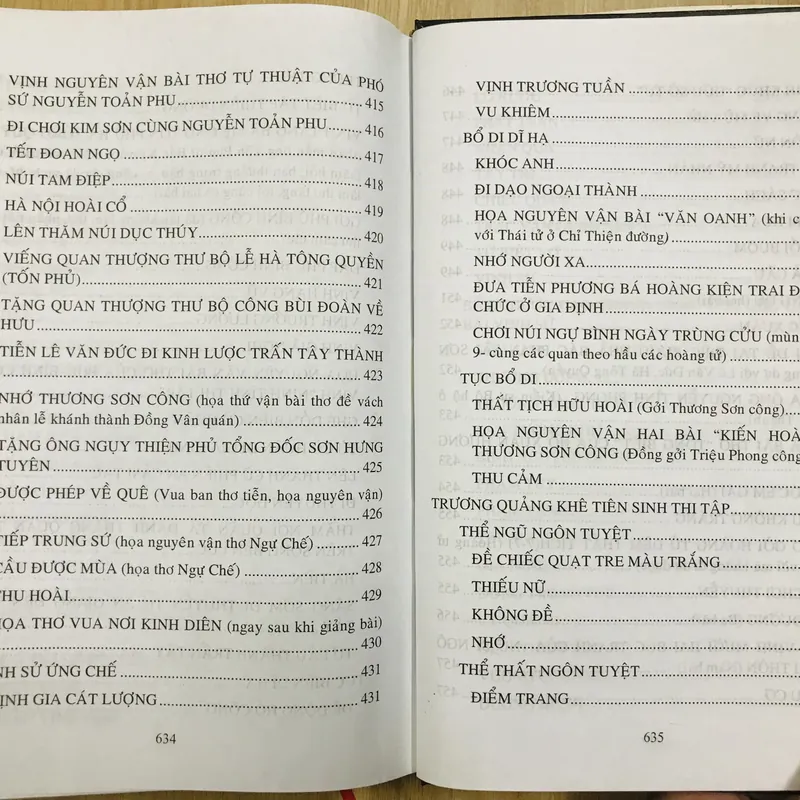 VỊNH NGUYÊN VẬN BÀI THƠ TỰ THUẬT CỦA PHÓ
SỨ NGUYỄN TOẢN PHU 415
ĐI CHƠI KIM SƠN CÙNG NGUYỄN TOẢN PHU 416
TẾT ĐOAN NGỌ 417
NÚI TAM ĐIỆP 418
HÀ NỘI HOÀI CỔ 419
LÊN THĂM NÚI DỤC THÚY 420
VIẾNG QUAN THƯỢNG THƯ BỘ LỄ HÀ TÔNG QUYỀN
(TỐN PHỦ) 421
TẶNG QUAN THƯỢNG THƯ BỘ CÔNG BÙI ĐOÀN VỀ
HƯU 422
TIỄN LÊ VĂN ĐỨC ĐI KINH LƯỢC TRẤN TÂY THÀNH
423
NHỚ THƯƠNG SƠN CÔNG (họa thứ vận bài thơ đề vách
nhân lễ khánh thành Đồng Vân quán) 424
TẶNG ÔNG NGỤY THIỆN PHỦ TỔNG ĐỐC SƠN HƯNG
TUYÊN 425
ĐƯỢC PHÉP VỀ QUÊ (Vua ban thơ tiễn, họa nguyên vận)
426
TIẾP TRUNG SỨ (họa nguyên vận thơ Ngự Chế) 427
CẦU ĐƯỢC MÙA (họa thơ Ngự Chế) 428
THU HOÀI 429
HỌA THƠ VUA NƠI KINH DIÊN (ngay sau khi giảng bài)
430
NH SỬ ỨNG CHẾ 431
ỊNH GIA CÁT LƯỢNG 431
634
VỊNH TRƯƠNG TUẦN
VU KHIÊM
BỔ DI DĨ HẠ
KHÓC ANH
ĐI DẠO NGOẠI THÀNH
HỌA NGUYÊN VẬN BÀI “VĂN OANH” (khi c
với Thái tử ở Chỉ Thiện đường)
NHỚ NGƯỜI XA
ĐƯA TIỄN PHƯƠNG BÁ HOÀNG KIỆN TRAI Đ
CHỨC Ở GIA ĐỊNH
CHƠI NÚI NGỰ BÌNH NGÀY TRÙNG CỬU (mùn
9- cùng các quan theo hầu các hoàng tử)
TỤC BỔ DI
THẤT TỊCH HỮU HOÀI (Gởi Thương Sơn công)
HỌA NGUYÊN VẬN HAI BÀI “KIẾN HOÀ
THƯƠNG SƠN CÔNG (Đồng gởi Triệu Phong công
THU CẢM
TRƯƠNG QUẢNG KHÊ TIÊN SINH THI TẬP
THỂ NGŨ NGÔN TUYỆT
ĐỀ CHIẾC QUẠT TRE MÀU TRẮNG
THIẾU NỮ
KHÔNG ĐỀ
NHỚ
THỂ THẤT NGÔN TUYỆT
ĐIỂM TRANG
635